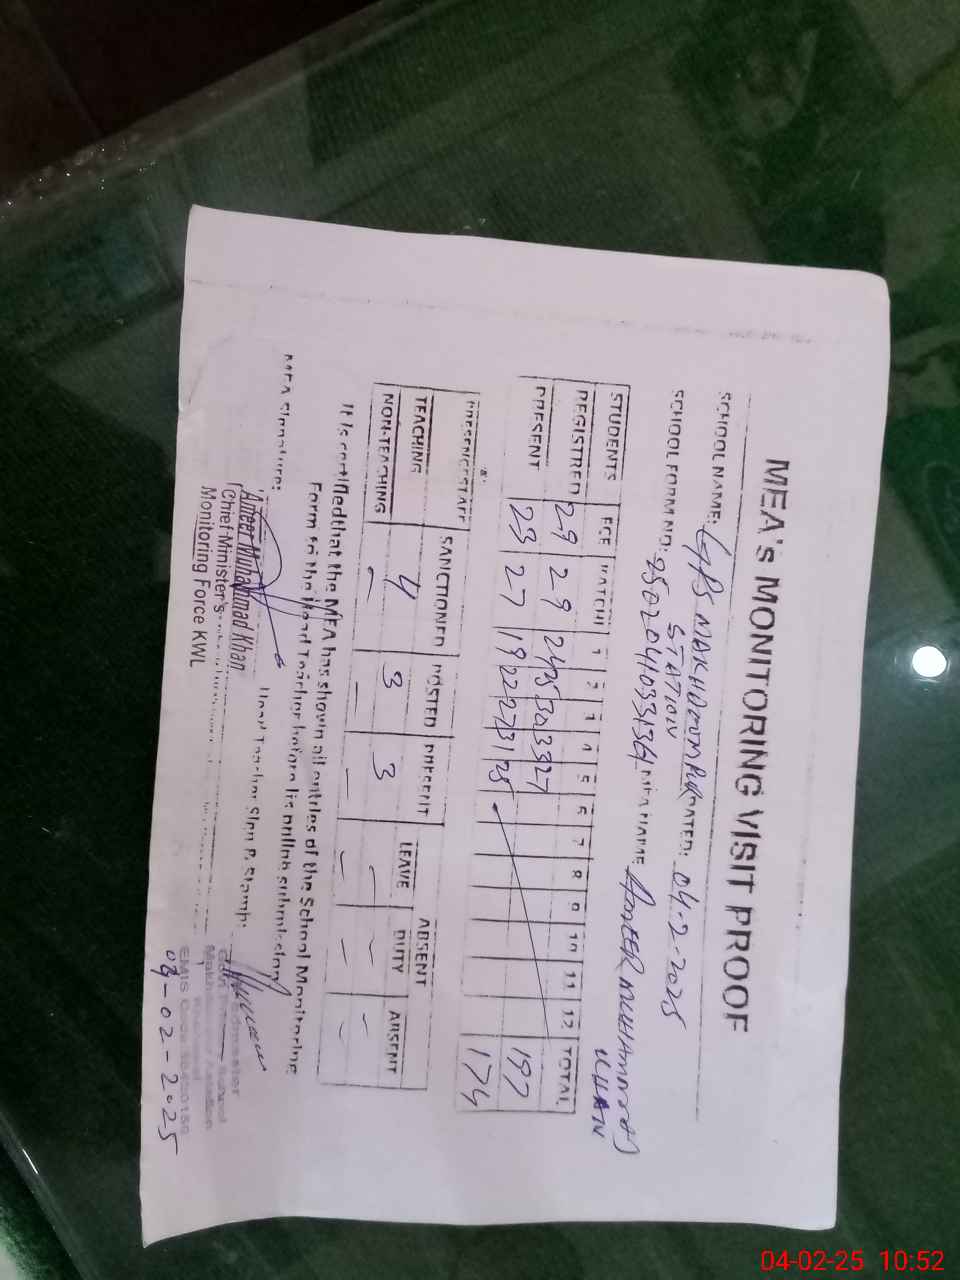 MEA's MONITORING VISIT PROOF
SCHOOL NAME: GPS MAKHDOOMPUR DATED: 04-2-2025
STATION
SCHOOL FORM NO: MEA NAME AMEER MUHAMMAD
KHAN
STUDENTS ECE KATCHI 1 2 3 4 5 6 7 8 9 10 11 12 TOTAL
REGISTRED 29 29 24 25 30 33 27 197
PRESENT 23 27 19 22 27 31 25 174
PRESENCE STAFF SANCTIONED POSTED PRESENT ABSENT
LEAVE DUTY ABSENT
TEACHING 4 3 3 - - -
NON-TEACHING - - - - - -
It is certified that the MEA has shown all entries of the School Monitoring
Form to the Head Teacher before its online submission
MEA Signature: Head Teacher Sign & Stamp:
Ameer Muhammad Khan
Chief Minister's
Monitoring Force KWL
Makh
EMIS Code
02-2025
04-02-25 10:52